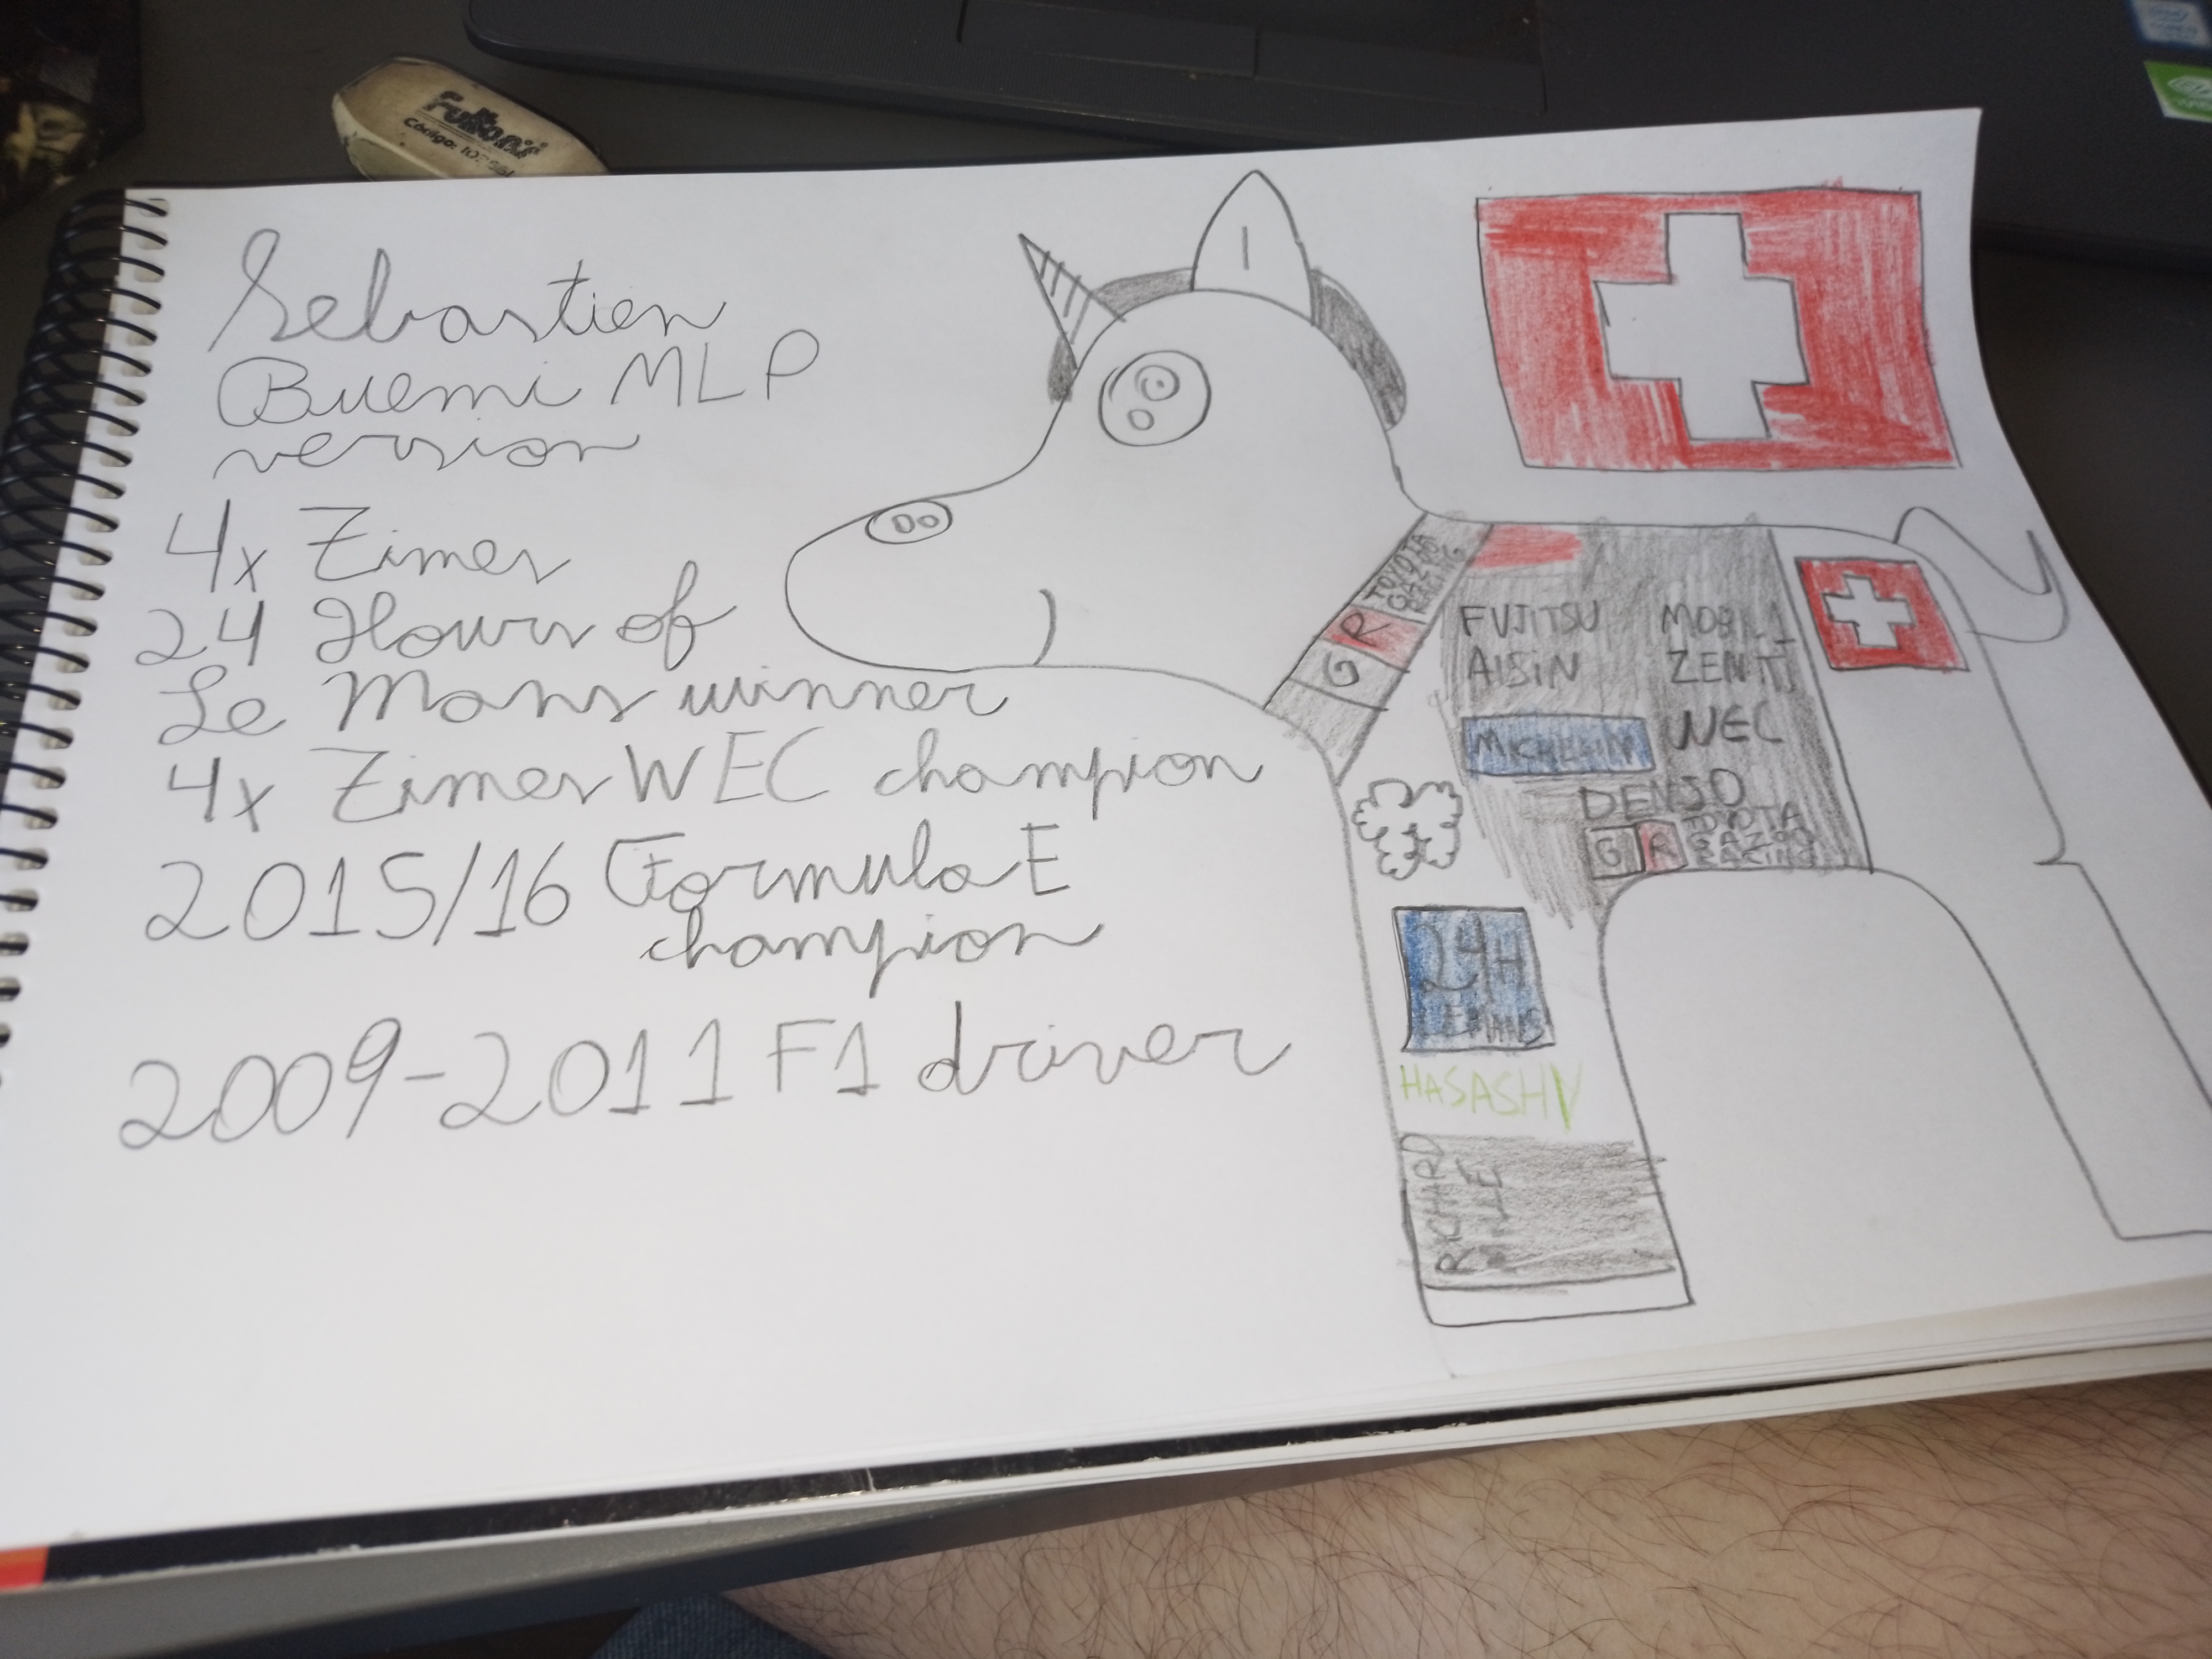 Fulton's
Código: 10
Sebastien
Buemi MLP
version
4x Zimes
24 Hours of
Le Mans winner
4x Zimes WEC champion
2015/16 Formula E
champion
2009-2011 F1 driver
TOYOTA
GAZOO
RACING
G R
FUJITSU
AISIN
MICHELIN
MOBIL 1
ZENT
WEC
DENSO
G R
TOYOTA
GAZOO
RACING
24H
LEMANS
HASASHV
RICHARD
MILLE